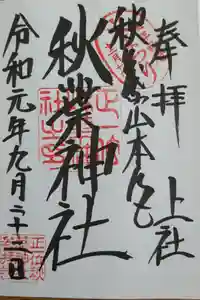 奉拝 上社
秋葉山本宮
秋葉神社
令和元年九月二十二日